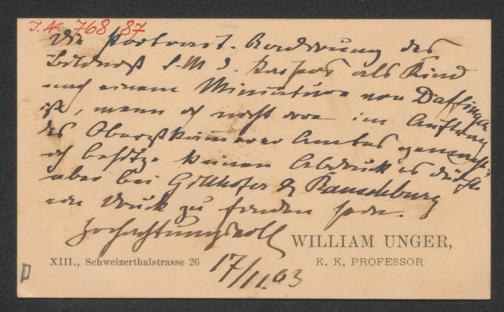 I.N. 768 87
Die Portrait-Radirung des
Bildniß S.M.d. Kaisers als Kind
nach einem Miniature von Daffinger
ist, wenn ich nicht irre im Auftrag
des Oberstkämmerer Amtes gemacht
ich besitze keinen Abdruck es dürfte
aber bei Gilhofer & Ranschburg
ein Druck zu finden sein.
Hochachtungsvoll
WILLIAM UNGER,
XIII., Schweizerthalstrasse 26
K. K. PROFESSOR
17/11.03